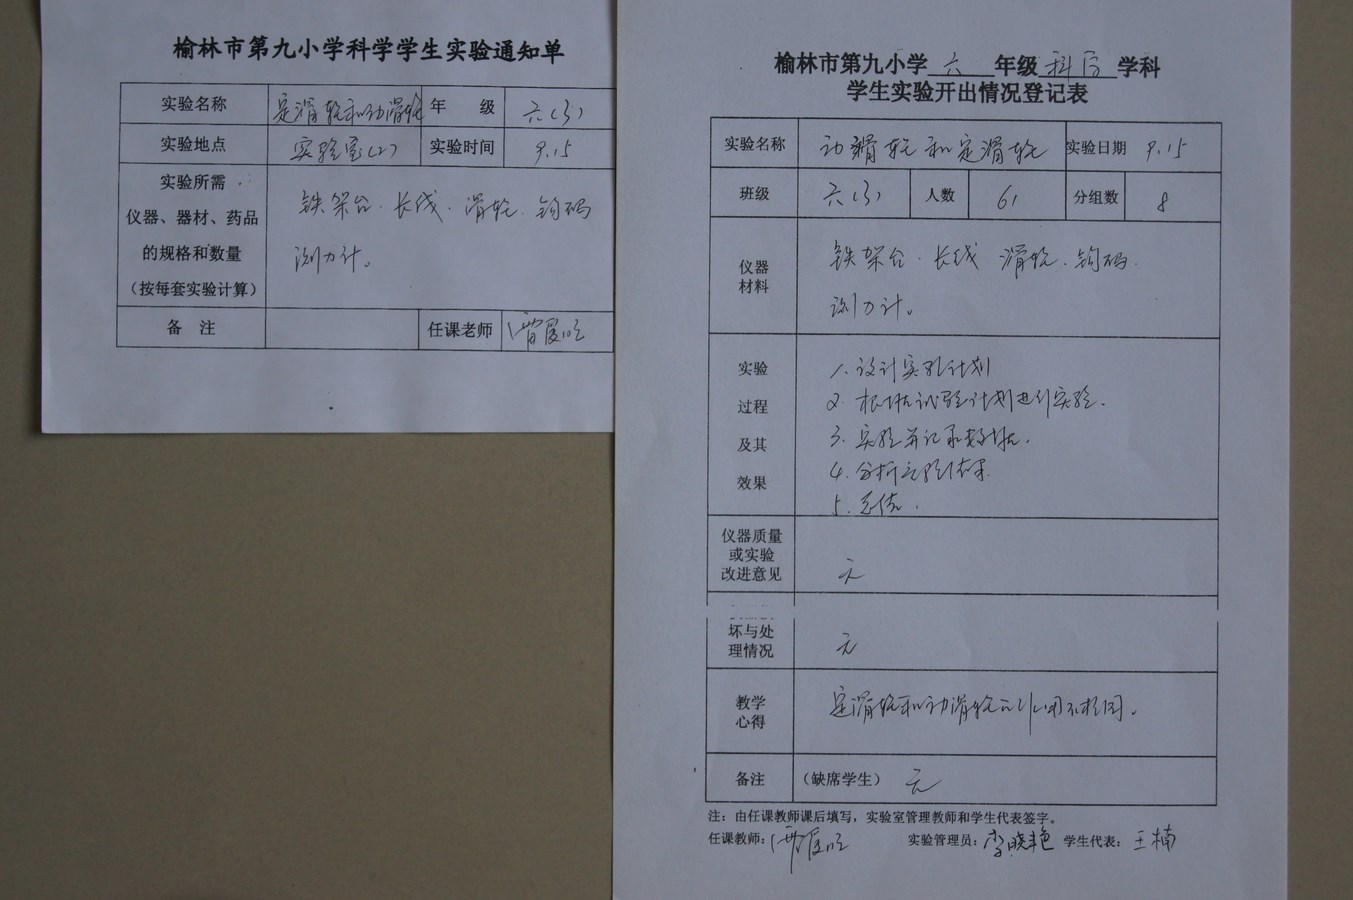 榆林市第九小学科学学生实验通知单
实验名称 定滑轮和动滑轮 年 级 六(3)
实验地点 实验室(2) 实验时间 9.15
实验所需
仪器、器材、药品
的规格和数量
（按每套实验计算）
铁架台.长线.滑轮.钩码
测力计。
备 注 任课老师
榆林市第九小学 六 年级 科学 学科
学生实验开出情况登记表
实验名称 动滑轮和定滑轮 实验日期 9.15
班级 六(3) 人数 61 分组数 8
仪器
材料
铁架台.长线 滑轮.钩码.
测力计。
实验
过程
及其
效果
1.设计实验计划
2.根据试验计划进行实验.
3.实验并记录数据.
4.分析实验结果.
5.总结.
仪器质量
或实验
改进意见
无
坏与处
理情况
无
教学
心得
定滑轮和动滑轮的作用不相同。
备注 （缺席学生） 无
注：由任课教师课后填写，实验室管理教师和学生代表签字。
任课教师： 实验管理员：李晓艳 学生代表：王楠